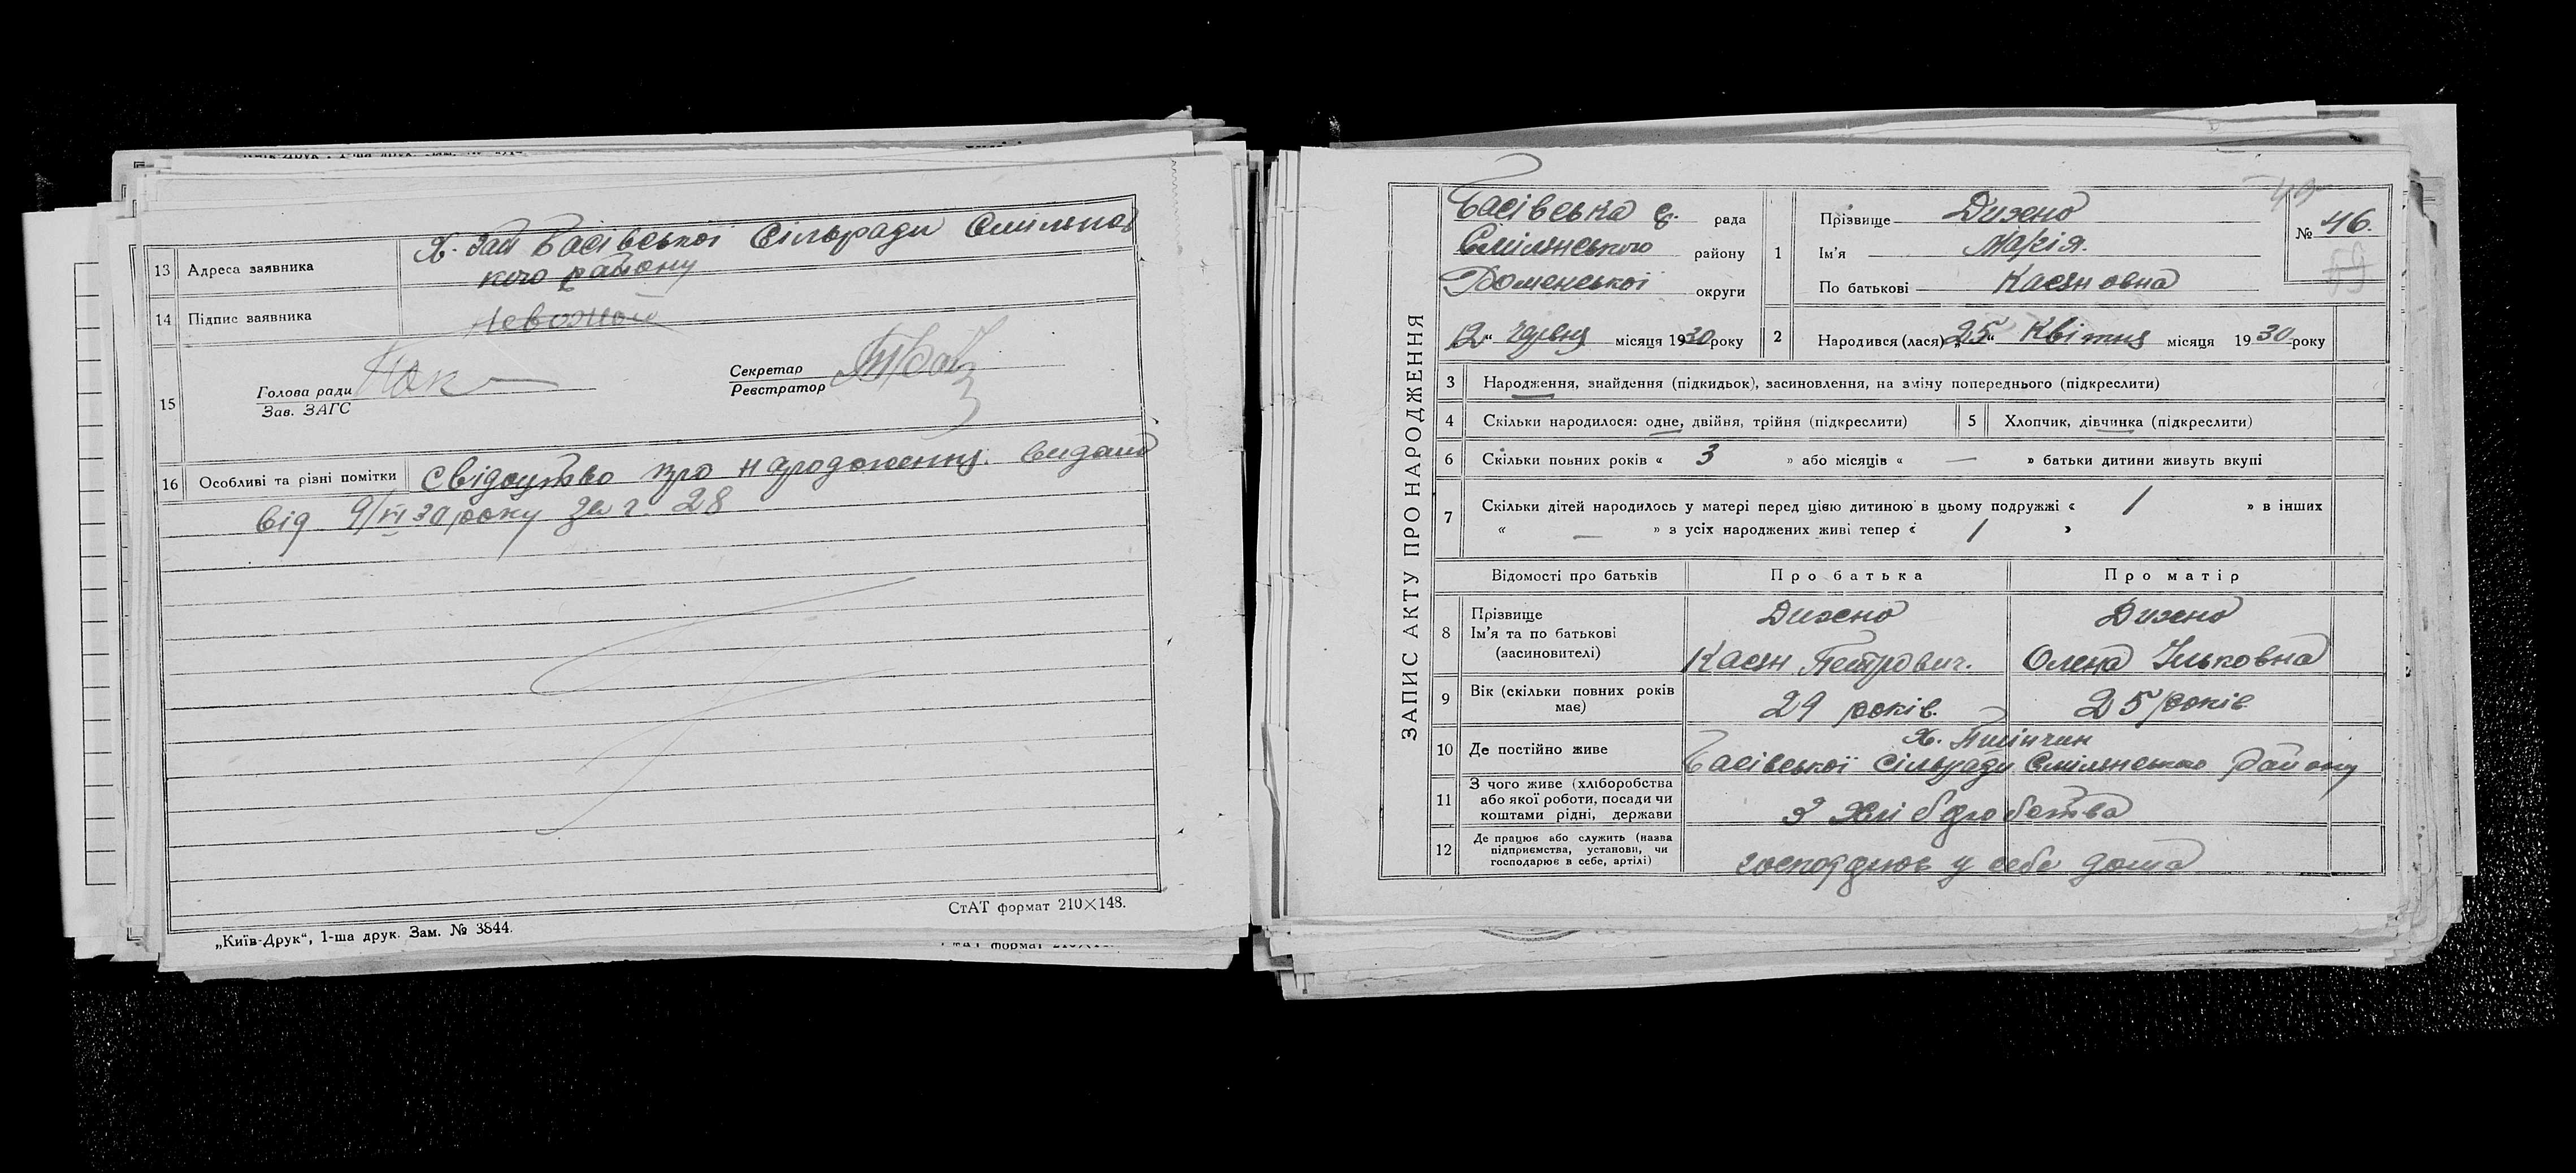 13 Адреса заявника Х. Гай Басівської Сільради Смілянсь
кого району
14 Підпис заявника
15 Голова ради
Зав. ЗАГС
Секретар
Реєстратор
16 Особливі та різні помітки Свідоцтво про народження видано
від 9/VI 30 року за г. 28
„Київ-Друк“, 1-ша друк. Зам. № 3844.
СтАТ формат 210×148.
ЗАПИС АКТУ ПРО НАРОДЖЕННЯ
Басівська с. рада
Смілянського району
Роменської округи
„12“ червня місяця 1930 року
1 Прізвище Дизено
Ім'я Марія.
По батькові Касяновна
№ 46.
2 Народився (лася) „25“ Квітня місяця 1930 року
3 Народження, знайдення (підкидьок), засиновлення, на зміну попереднього (підкреслити)
4 Скільки народилося: одне, двійня, трійня (підкреслити)
5 Хлопчик, дівчинка (підкреслити)
6 Скільки повних років « 3 » або місяців « — » батьки дитини живуть вкупі
7 Скільки дітей народилось у матері перед цією дитиною в цьому подружжі « 1 » в інших
« — » з усіх народжених живі тепер « 1 »
Відомості про батьків Про батька Про матір
8 Прізвище
Ім'я та по батькові
(засиновителі)
Дизено
Касян Петрович.
Дизено
Олена Ільковна
9 Вік (скільки повних років
має)
29 років.
25 років
10 Де постійно живе
Х.
Басівської сільради Смілянського району
11 З чого живе (хліборобства
або якої роботи, посади чи
коштами рідні, держави
З хліборобства
12 Де працює або служить (назва
підприємства, установи, чи
господарює в себе, артілі)
господрює у себе дома